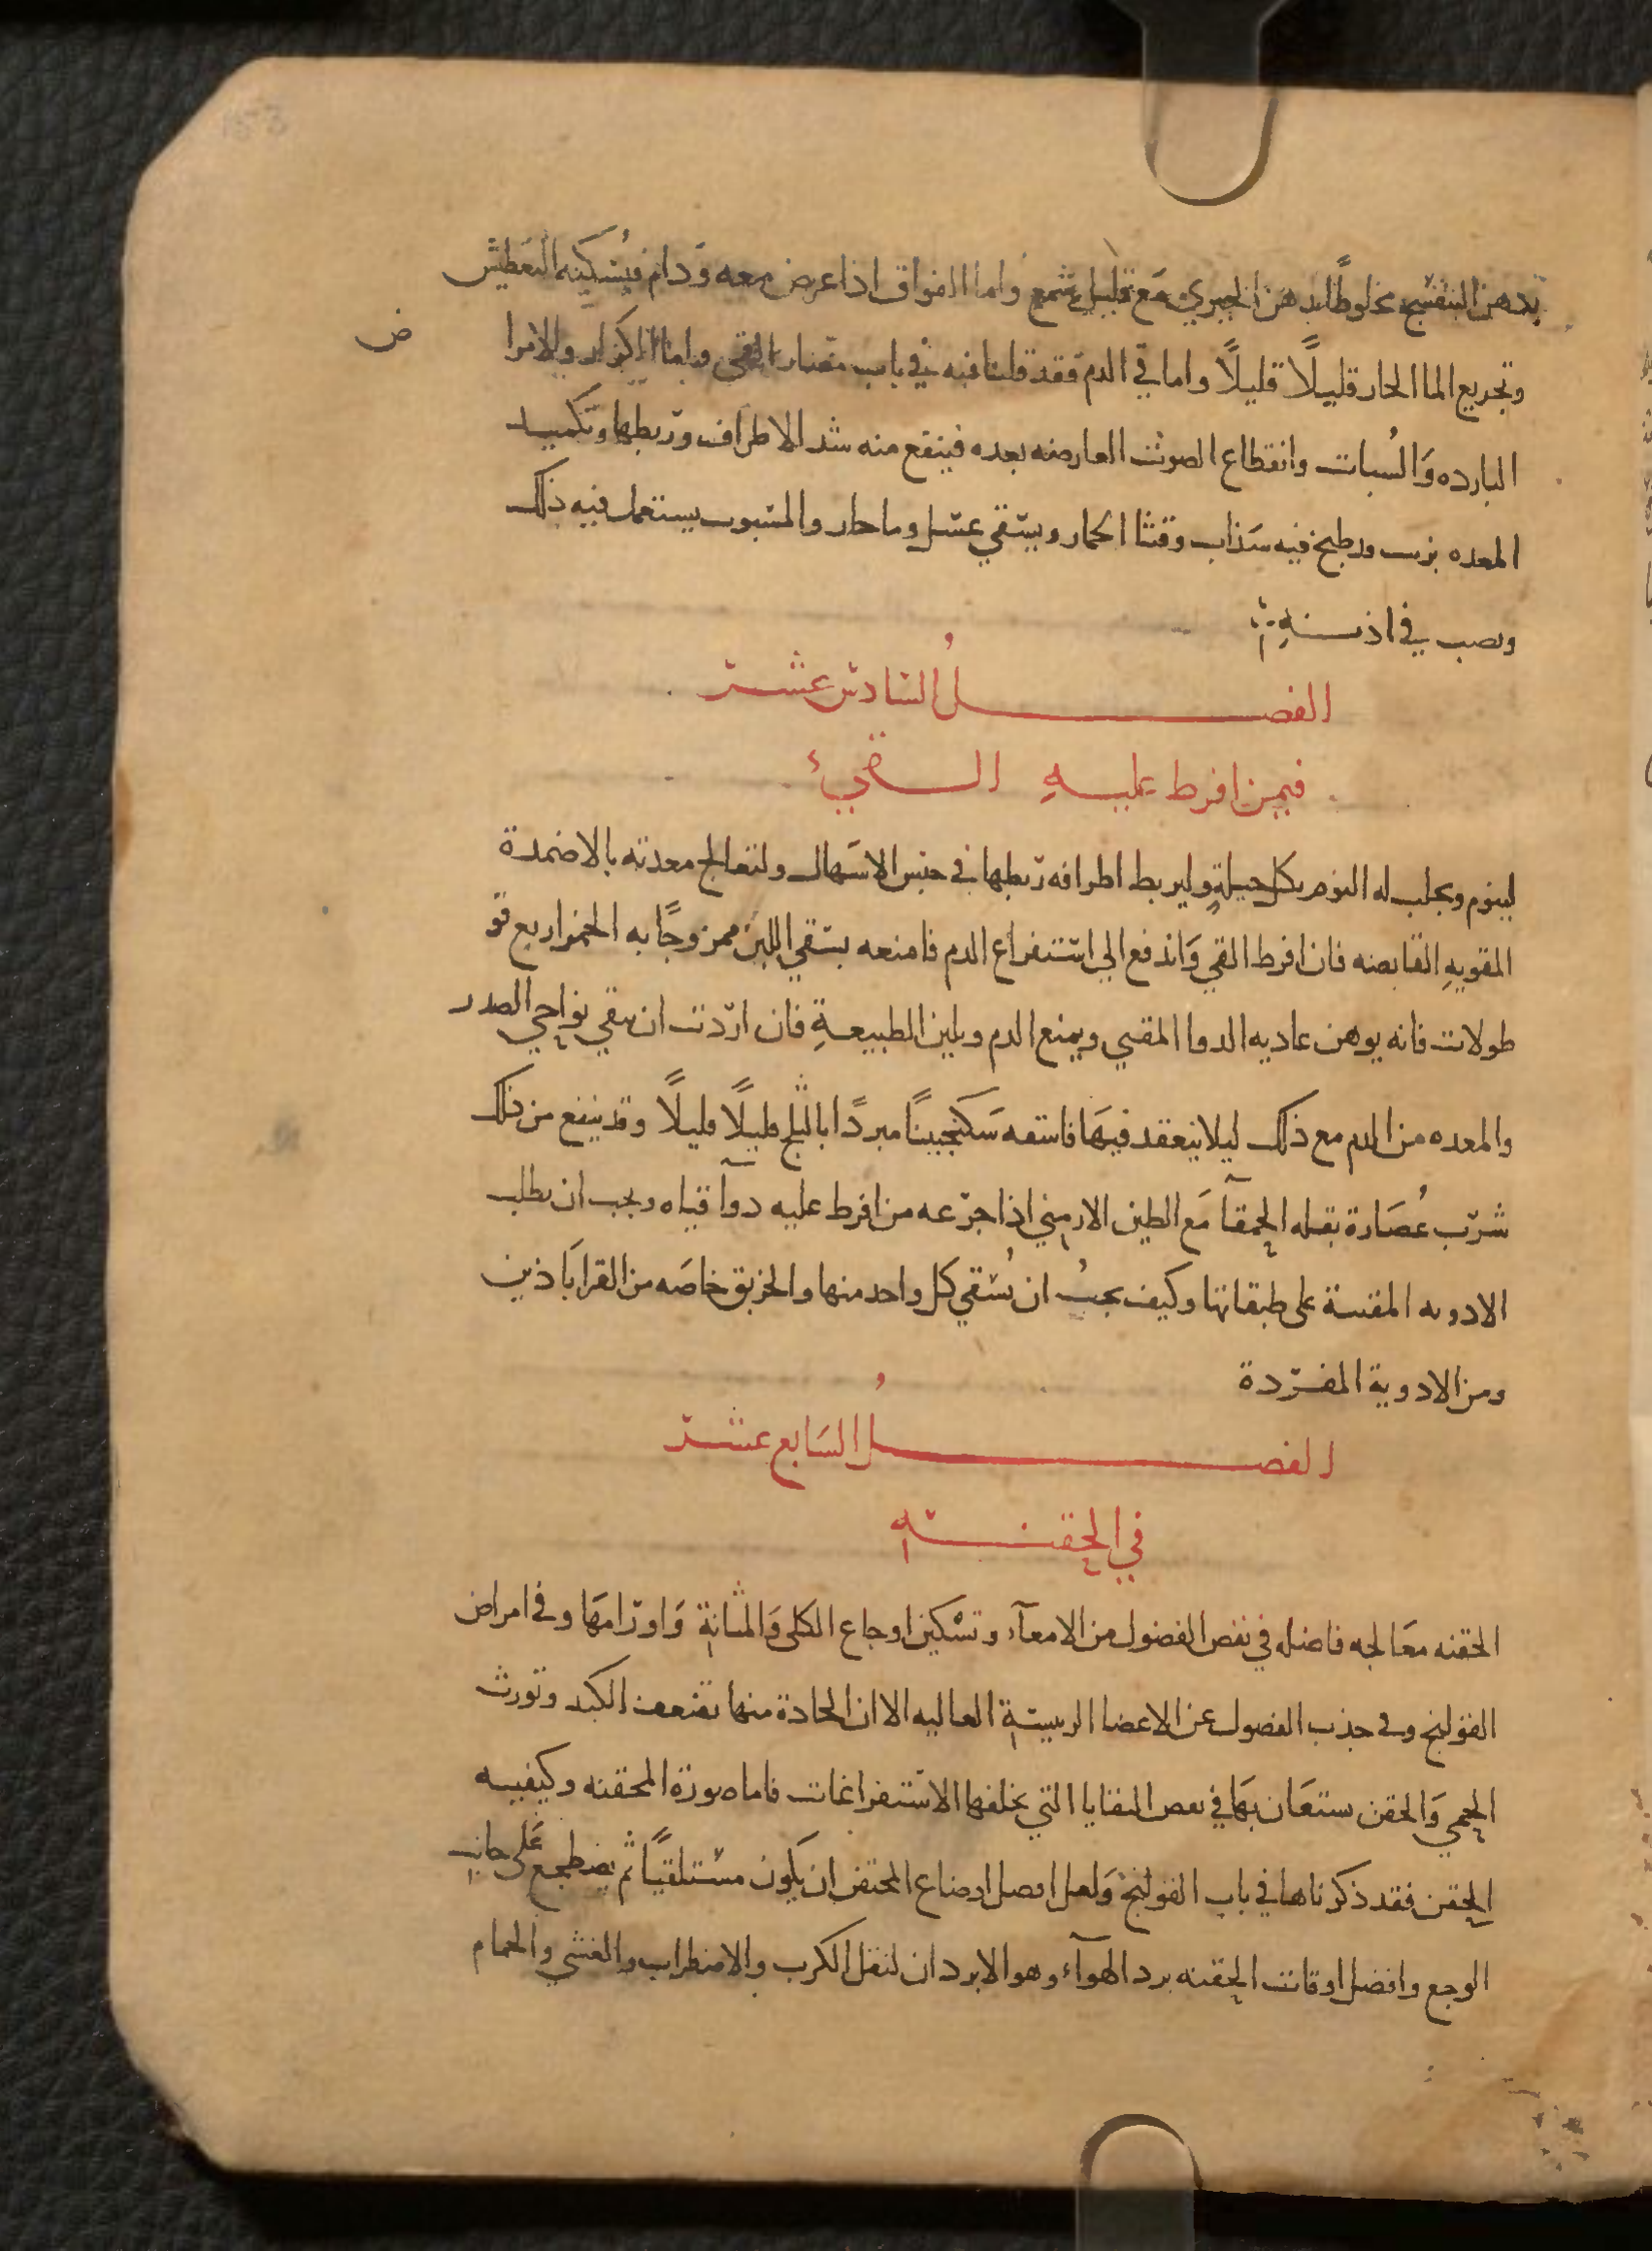 بدهن البنفسج مخلوطًا بدهن الخيري مَع قليل شمع واما الفواق اذا عرض معه ودام فيُسكينه التعطيش
وتجريع الما الحار قليلًا قليلًا واما في الدم فقد قلنا فيه في باب مضار القي واما الكزاز والامراض
البارده وَالسُبات وانقطاع الصوت العارضه بعده فينفع منه شد الاطراف وربطها وتكميد
المعده بزيت ودطبخ فيه سَذاب وقثا الحمار ويسقي عسل وما حار والمسبوب يستعمل فيه ذلك
وىصب في اذنـــنهِ
الفصـــــلُ السادس عشـــر
فيمن افرط عليــهِ الـــقيء
لينوم ويجلب له النوم بكل حيلةٍ وليربط اطرافه ربطها في حبس الاسَهال ولتعالج معدته بالاضمدة
المقويهِ القابضه فان افرط القي وَاندفع الي استفراغ الدم فامنعه بسقي اللبن ممزوجًا به الخمر اربع قو
طولات فانه يوهن عاديه الدوا المقيي ويمنع الدم ويلين الطبيعــةِ فان اردت ان ىنقي نواحي الصدر
والمعده من الدم مع ذلك ليلا ينعقد فيهَا فاسقه سَكنجبينًا مبردًا بالثلج قليلًا قليلًا وقد ينفع من ذلك
شرب عُصَارة بقله الحمقآ مَع الطين الارمني اذا جرّعه من افرط عليه دوآ قياه ويجب ان يطلب
الادويه المقيئة على طبقاتها وكيف يجبُ ان يُسقي كل واحد منها والخربق خاصَه من القراباَذين
ومن الادوية المفـــردة
الفصـــــلُ السَابع عشـــر
في الحقنـــــه
الحقنه معَالجه فاضله في نفض الفضول من الامعآء وتسْكين اوجاع الكلى وَالمثانة وَاورامَها وفي امراض
القولنج وفي جذب الفضول عن الاعضا الرييسية العاليه الا ان الحادة منها تضعف الكبد وتورث
الحمي وَالحقن يستعَان بهَا في بعض البقايا التي يخلفها الاستفراغات فاما صورة المحقنه وكيفيه
الحقن فقد ذكرناها في باب القولنج وَلعل افضل اوضاع المحتقن ان يكون مستلقيًا ثم يضطجع عَلى جانب
الوجع وافضل اوقات الحقنه برد الهوآء وهو الابردان لتقل الكرب والاضطراب والغشي والحمام